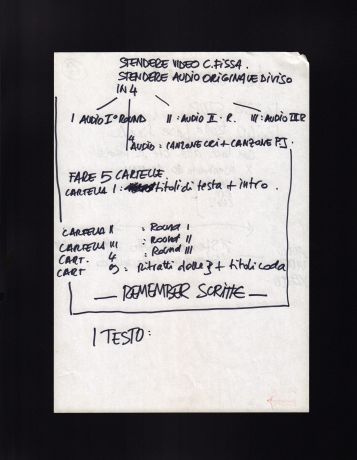 STENDERE VIDEO C. FISSA.
STENDERE AUDIO ORIGINALE DIVISO
IN 4
I AUDIO I° ROUND II : AUDIO II · R. III : AUDIO III R
4 AUDIO : CANZONE CRI + CANZONE PJ.
FARE 5 CARTELLE
CARTELLA I : titoli di testa + intro.
CARTELLA II : ROUND I
CARTELLA III : ROUND II
CART. 4 : ROUND III
CART 5 : Ritratti delle 3 + titoli coda
— REMEMBER SCRITTE —
I TESTO :